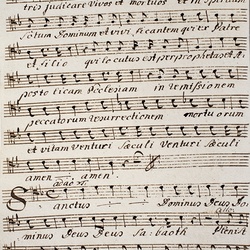 tris judicare vivos et mortuos et in spiritum
sctum Dominum et vivificantem qui ex Patre
et filio qui locutus est per prophetas et A
postolicam Ecclesiam in remissionem
peccatorum resurrectionem mortuorum
et vitam venturi Sæculi venturi Sæculi
amen amen.
adagio
Sanctus Dominus Deus Do
minus Deus Deus Sabaoth Pleni s